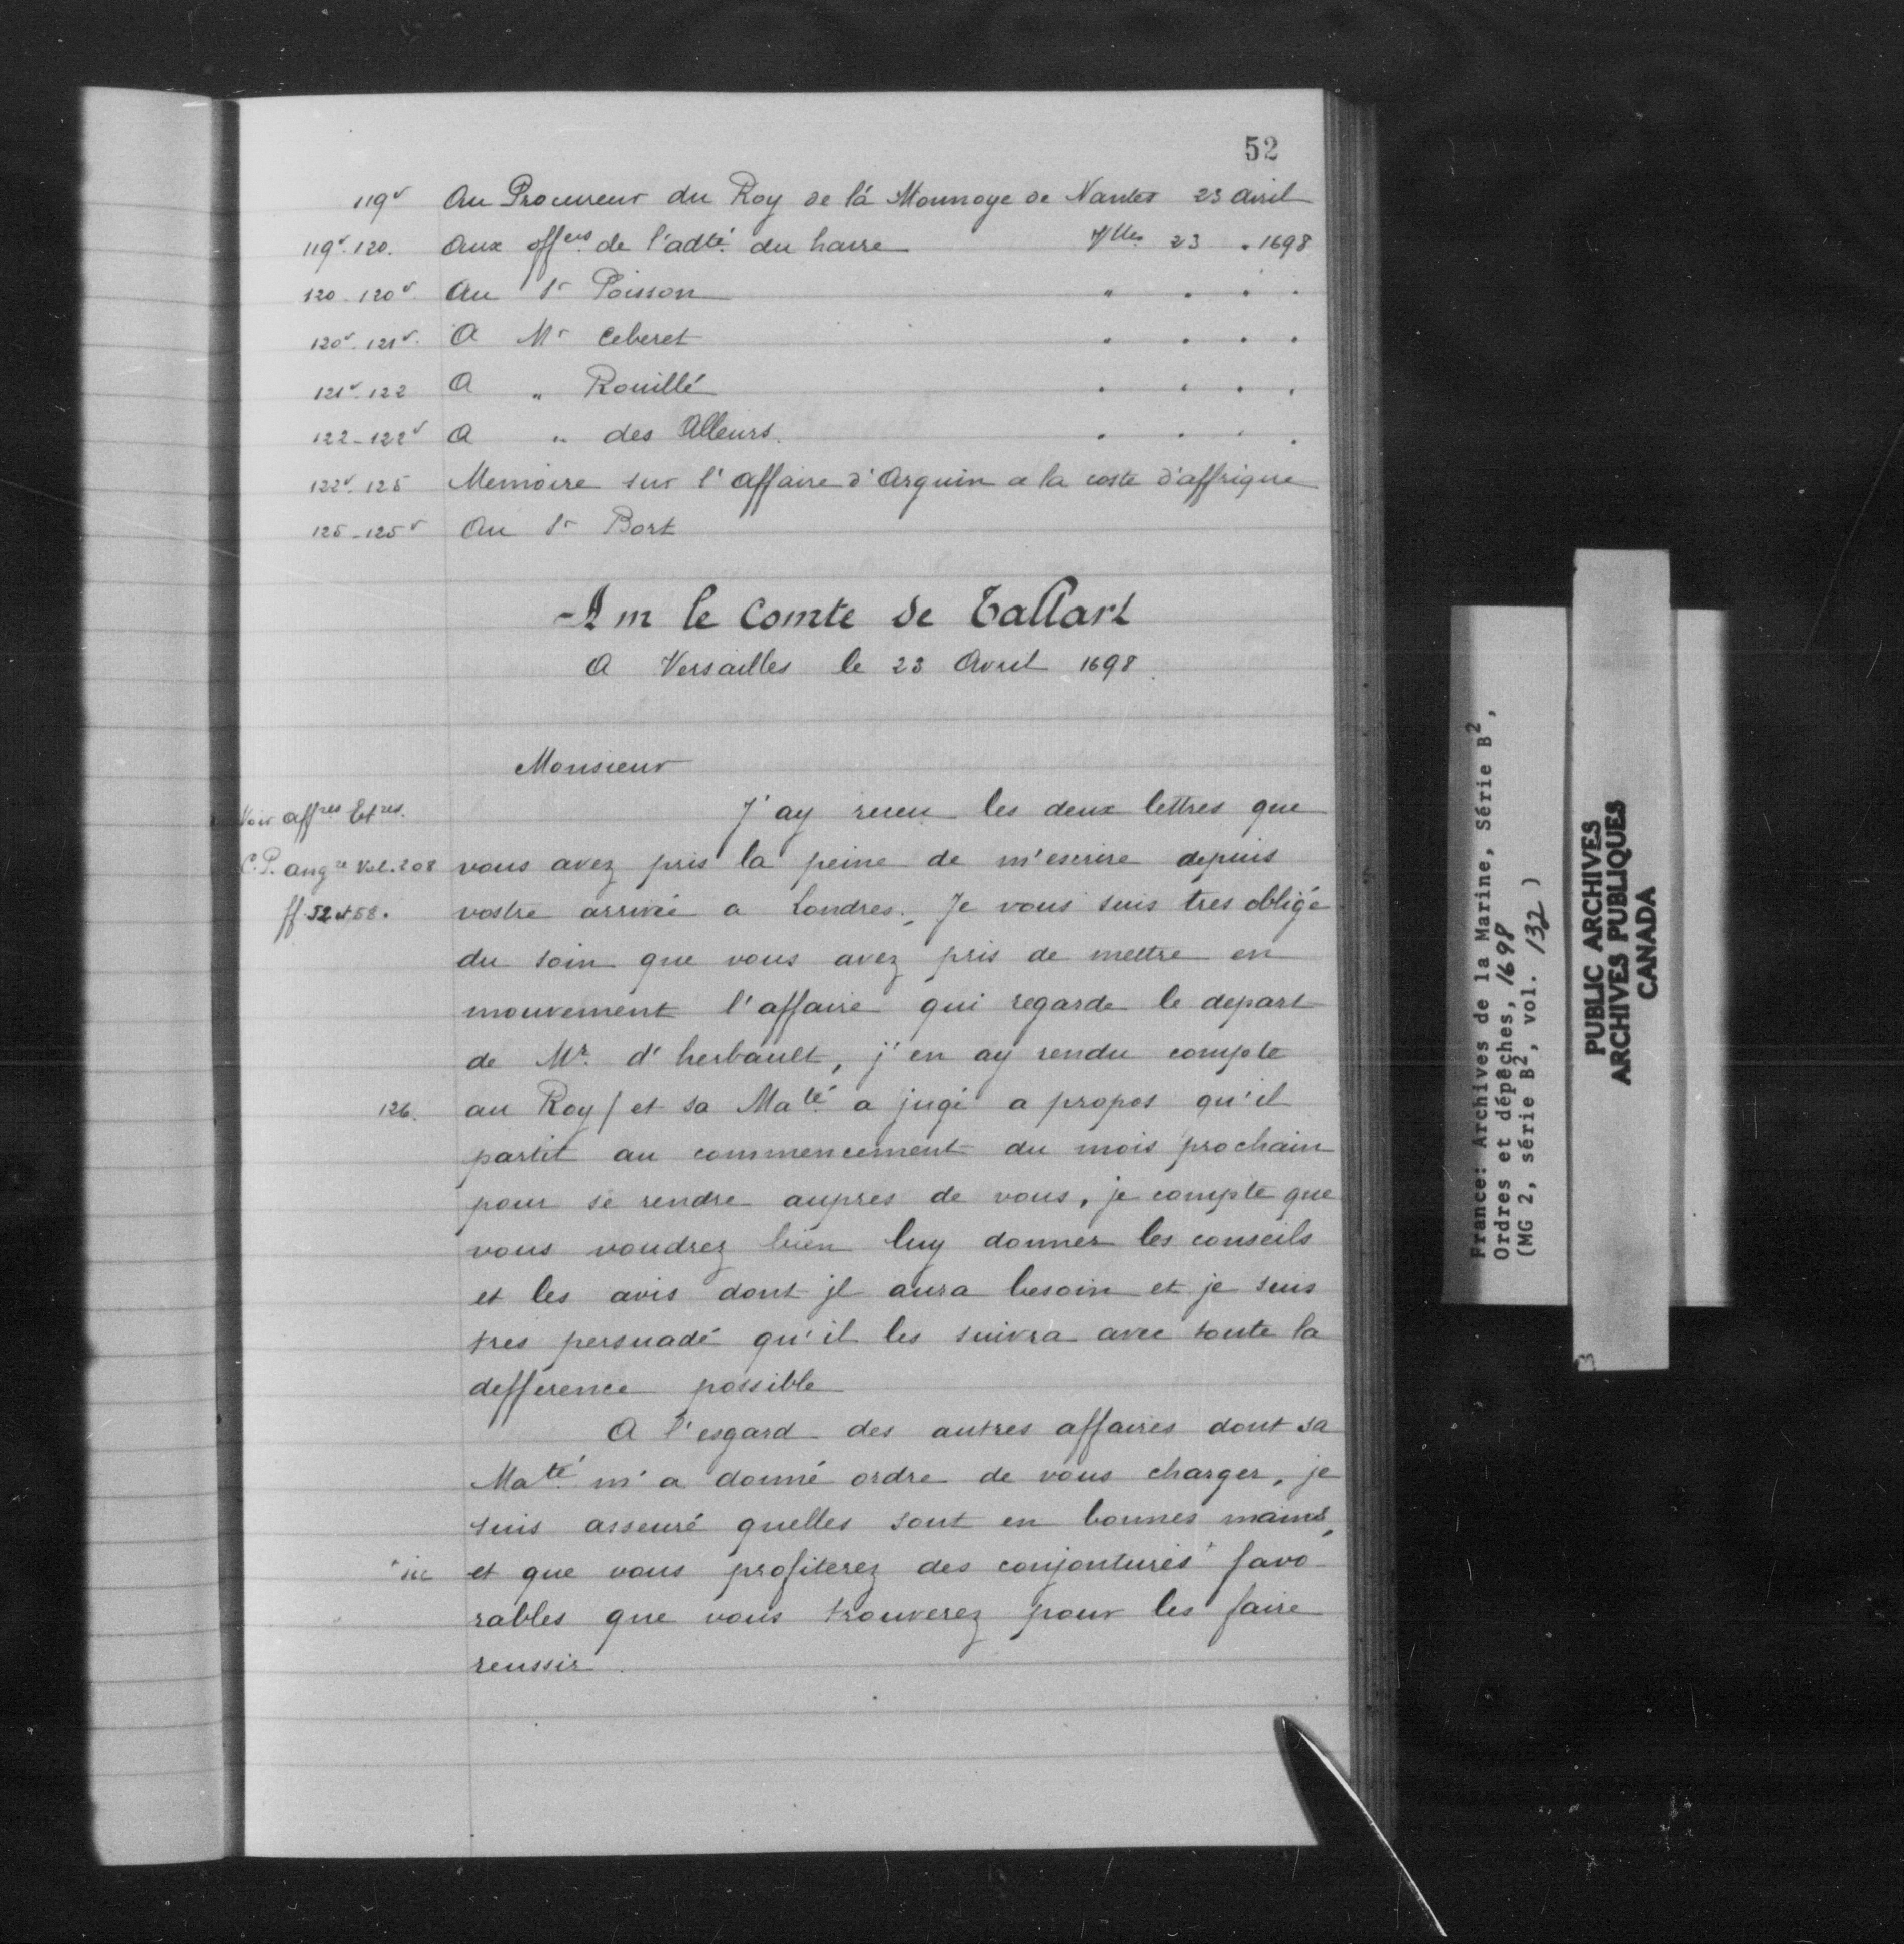 52
119v Au Procureur du Roy de la Monnoye de Nantes 23 avril
119v. 120. Aux offers de l'adté. du havre Vlles 23 " 1698
120 - 120v. Au Sr Poisson " " " "
120v. 121v. A Mr Ceberet " " " "
121v. 122 A " Rouillé " " " "
122 - 122v A " des Alleurs. " " " "
122v. 125 Memoire sur l'affaire d'Arguin a la coste d'affrique
125 - 125v Au Sr Bort
A m le Comte de Tallart
A Versailles le 23 Avril 1698.
Monsieur
Voir affres Etres. J'ay receu les deux lettres que
C.P. angre Vol. 208 vous avez pris la peine de m'escrire depuis
ff 52 et 58. vostre arrivée a Londres. Je vous suis tres obligé
du soin que vous avez pris de mettre en
mouvement l'affaire qui regarde le depart
de Mr. d'herbault, j'en ay rendu compte
126. au Roy / et sa Maté. a jugé a propos qu'il
partit au commencement du mois prochain
pour se rendre aupres de vous, je compte que
vous voudrez bien luy donner les conseils
et les avis dont jl aura besoin et je suis
tres persuadé qu'il les suivra avec toute la
defference possible
A l'esgard des autres affaires dont sa
Maté. m'a donné ordre de vous charger, je
suis asseuré quelles sont en bonnes mains,
+ sic et que vous profiterez des conjontures + favo-
rables que vous trouverez pour les faire
reussir.
France: Archives de la Marine, Série B2,
Ordres et dépêches, 1698
(MG 2, série B2, vol. 132)
PUBLIC ARCHIVES
ARCHIVES PUBLIQUES
CANADA
3